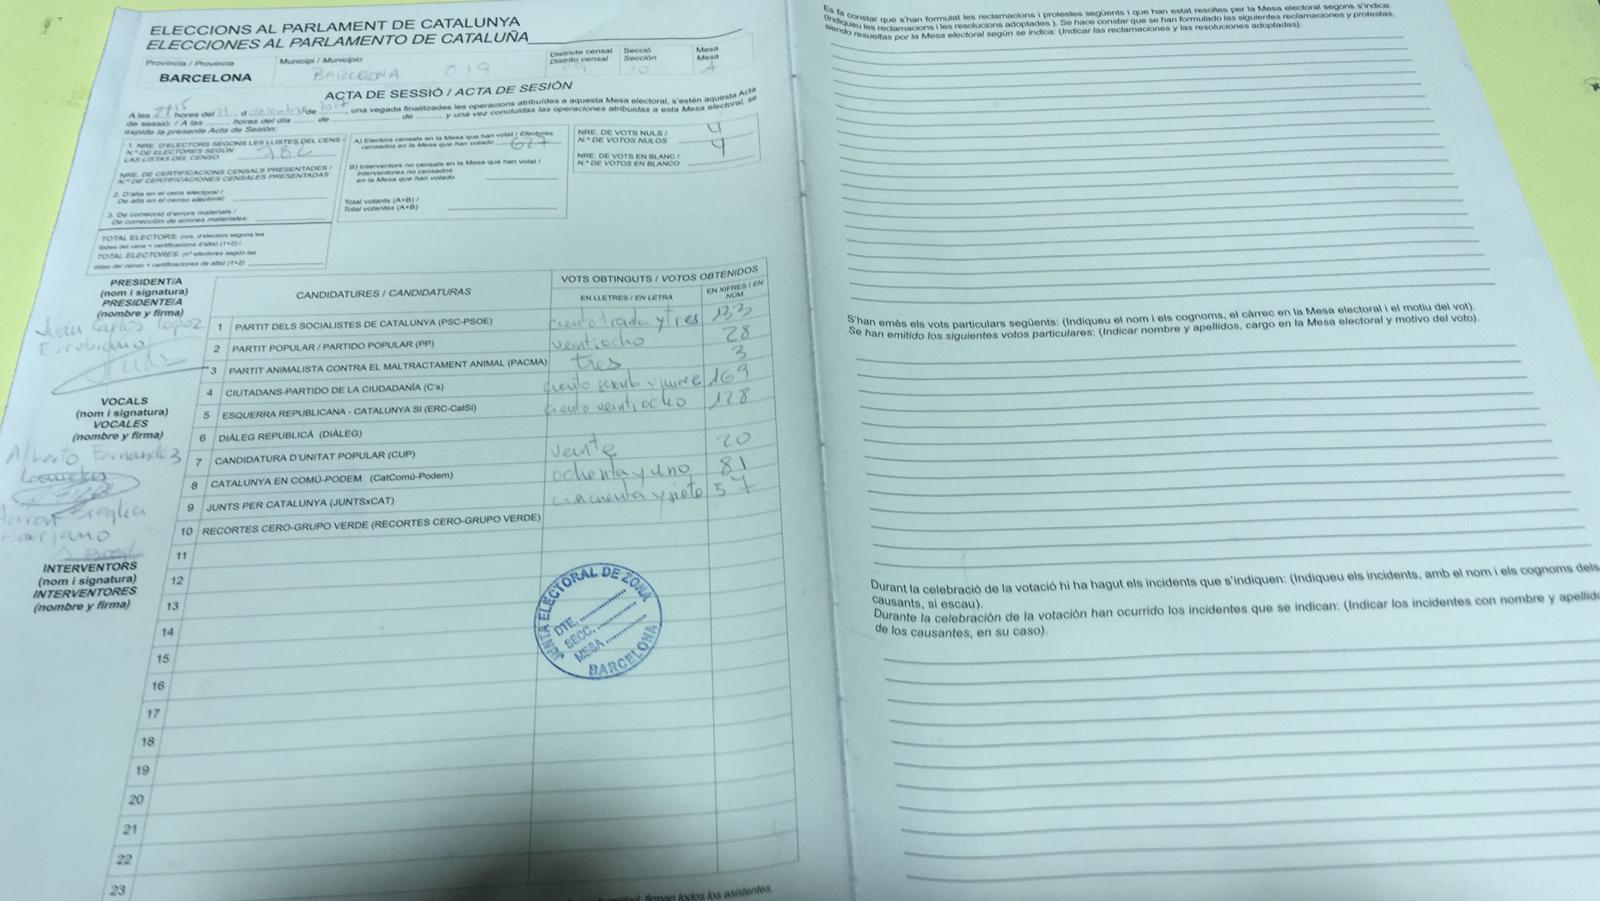 ELECCIONS AL PARLAMENT DE CATALUNYA
ELECCIONES AL PARLAMENTO DE CATALUÑA
Província / Provincia
Municipi / Municipio
Districte censal
Distrito censal
Secció
Sección
Mesa
Mesa
BARCELONA
BARCELONA 019
09
10
A
ACTA DE SESSIÓ / ACTA DE SESIÓN
A les hores del d de 2017, una vegada finalitzades les operacions atribuïdes a aquesta Mesa electoral, s'estén aquesta Acta
de sessió. / A las horas del día de de y una vez concluidas las operaciones atribuidas a esta Mesa electoral, se
expide la presente Acta de Sesión:
1. NRE. D'ELECTORS SEGONS LES LLISTES DEL CENS /
N.º DE ELECTORES SEGÚN
LAS LISTAS DEL CENSO
782
NRE. DE CERTIFICACIONS CENSALS PRESENTADES /
N.º DE CERTIFICACIONES CENSALES PRESENTADAS
2. D'alta en el cens electoral /
De alta en el censo electoral:
3. De correcció d'errors materials /
De corrección de errores materiales:
TOTAL ELECTORS: (nre. d'electors segons les
llistes del cens + certificacions d'alta) (1+2) /
TOTAL ELECTORES: (nº electores según las
listas del censo + certificaciones de alta) (1+2)
A) Electors censats en la Mesa que han votat / Electores
censados en la Mesa que han votado 627
B) Interventors no censats en la Mesa que han votat /
Interventores no censados
en la Mesa que han votado
Total votants (A+B) /
Total votantes (A+B)
NRE. DE VOTS NULS /
N.º DE VOTOS NULOS
4
NRE. DE VOTS EN BLANC /
N.º DE VOTOS EN BLANCO
4
PRESIDENT/A
(nom i signatura)
PRESIDENTE/A
(nombre y firma)
Juan Carlos Lopez
VOCALS
(nom i signatura)
VOCALES
(nombre y firma)
Alberto Fernandez
INTERVENTORS
(nom i signatura)
INTERVENTORES
(nombre y firma)
CANDIDATURES / CANDIDATURAS
VOTS OBTINGUTS / VOTOS OBTENIDOS
EN LLETRES / EN LETRA
EN XIFRES / EN NÚM.
1 PARTIT DELS SOCIALISTES DE CATALUNYA (PSC-PSOE) ciento trenta y tres 133
2 PARTIT POPULAR / PARTIDO POPULAR (PP) veintiocho 28
3 PARTIT ANIMALISTA CONTRA EL MALTRACTAMENT ANIMAL (PACMA) tres 3
4 CIUTADANS-PARTIDO DE LA CIUDADANÍA (C's) ciento sesenta y nueve 169
5 ESQUERRA REPUBLICANA - CATALUNYA SI (ERC-CatSí) ciento veintiocho 128
6 DIÀLEG REPUBLICÀ (DIÀLEG)
7 CANDIDATURA D'UNITAT POPULAR (CUP) veinte 20
8 CATALUNYA EN COMÚ-PODEM (CatComú-Podem) ochenta y uno 81
9 JUNTS PER CATALUNYA (JUNTSxCAT) cincuenta y siete 57
10 RECORTES CERO-GRUPO VERDE (RECORTES CERO-GRUPO VERDE)
11
12
13
14
15
16
17
18
19
20
21
22
23
JUNTA ELECTORAL DE ZONA
DTE.
SECC.
MESA
BARCELONA
firman todos los asistentes.
Es fa constar que s'han formulat les reclamacions i protestes següents i que han estat resoltes per la Mesa electoral segons s'indica:
(Indiqueu les reclamacions i les resolucions adoptades ). Se hace constar que se han formulado las siguientes reclamaciones y protestas,
siendo resueltas por la Mesa electoral según se indica: (Indicar las reclamaciones y las resoluciones adoptadas).
S'han emès els vots particulars següents: (Indiqueu el nom i els cognoms, el càrrec en la Mesa electoral i el motiu del vot).
Se han emitido los siguientes votos particulares: (Indicar nombre y apellidos, cargo en la Mesa electoral y motivo del voto).
Durant la celebració de la votació hi ha hagut els incidents que s'indiquen: (Indiqueu els incidents, amb el nom i els cognoms dels
causants, si escau).
Durante la celebración de la votación han ocurrido los incidentes que se indican: (Indicar los incidentes con nombre y apellidos
de los causantes, en su caso).